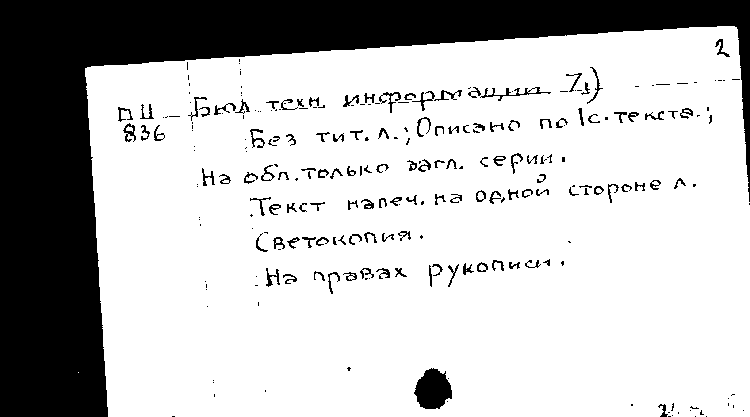 2
П II Бюл техн. информации 7,)
836
Без тит. л.; Описано по 1с. текста.;
На обл. только загл. серии.
Текст напеч. на одной стороне л.
Светокопия.
На правах рукописи.